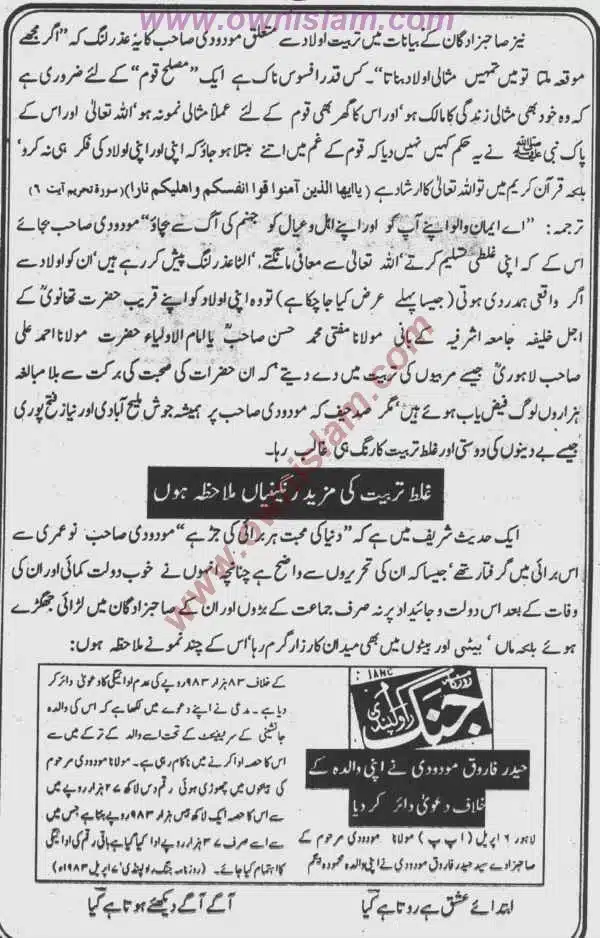 www.ownislam.com
نیز صاحبزادگان کے بیانات میں تربیت اولاد سے متعلق مودودی صاحب کا یہ عذر لنگ کہ ”اگر مجھے
موقعہ ملتا تو میں تمہیں مثالی اولاد بناتا“۔ کس قدر افسوس ناک ہے ایک ”مصلح قوم“ کے لئے ضروری ہے
کہ وہ خود بھی مثالی زندگی کا مالک ہو‘ اور اس کا گھر بھی قوم کے لئے عملاً مثالی نمونہ ہو‘ اللہ تعالیٰ اور اس کے
پاک نبی ﷺ نے یہ حکم کہیں نہیں دیا کہ قوم کے غم میں اتنے مبتلا ہو جاؤ کہ اپنی اور اپنی اولاد کی فکر ہی نہ کرو‘
بلکہ قرآن کریم میں تو اللہ تعالیٰ کا ارشاد ہے (یاایھا الذین آمنوا قوا انفسکم واھلیکم نارا) (سورۃ تحریم آیت ۶)
ترجمہ: ”اے ایمان والو اپنے آپ کو اور اپنے اہل و عیال کو جہنم کی آگ سے بچاؤ“ مودودی صاحب بجائے
اس کے کہ اپنی غلطی تسلیم کرتے‘ اللہ تعالیٰ سے معافی مانگتے‘ الٹا عذر لنگ پیش کر رہے ہیں‘ ان کو اولاد سے
اگر واقعی ہمدردی ہوتی (جیسا پہلے عرض کیا جا چکا ہے) تو وہ اپنی اولاد کو اپنے قریب حضرت تھانویؒ کے
اجل خلیفہ جامعہ اشرفیہ کے بانی مولانا مفتی محمد حسن صاحبؒ یا امام الاولیاء حضرت مولانا احمد علی
صاحب لاہوریؒ جیسے مربیوں کی تربیت میں دے دیتے‘ کہ ان حضرات کی صحبت کی برکت سے بلا مبالغہ
ہزاروں لوگ فیض یاب ہوئے ہیں‘ مگر صد حیف کہ مودودی صاحب پر ہمیشہ جوش ملیح آبادی اور نیاز فتح پوری
جیسے بے دینوں کی دوستی اور غلط تربیت کا رنگ ہی غالب رہا۔
غلط تربیت کی مزید رنگینیاں ملاحظہ ہوں
ایک حدیث شریف میں ہے کہ ”دنیا کی محبت ہر برائی کی جڑ ہے“ مودودی صاحب نو عمری سے
اس برائی میں گرفتار تھے‘ جیسا کہ ان کی تحریروں سے واضح ہے چنانچہ انہوں نے خوب دولت کمائی اور ان کی
وفات کے بعد اس دولت و جائیداد پر نہ صرف جماعت کے بڑوں اور ان کے صاحبزادگان میں لڑائی جھگڑے
ہوئے بلکہ ماں‘ بیٹی اور بیٹوں میں بھی میدان کارزار گرم رہا‘ اس کے چند نمونے ملاحظہ ہوں:
روزنامہ
جنگ
راولپنڈی
حیدر فاروق مودودی نے اپنی والدہ کے
خلاف دعویٰ دائر کر دیا
لاہور ۶ اپریل (اپ پ) مولانا مودودی مرحوم کے
صاحبزادے سید حیدر فاروق مودودی نے اپنی والدہ محمودہ بیگم
کے خلاف ۸۳ ہزار ۹۸۳ روپے کی عدم ادائیگی کا دعویٰ دائر کر
دیا ہے۔ مدعی نے اپنے دعوے میں لکھا ہے کہ اس کی والدہ
جانشینی کے سرٹیفکیٹ کے تحت اسے والد کے ترکے میں سے
اس کا حصہ ادا کرنے میں ناکام رہی ہے۔ مولانا مودودی مرحوم
کی بینکوں میں چھوڑی ہوئی رقم دس لاکھ ۲۷ ہزار روپے میں
سے اس کا حصہ ایک لاکھ بیس ہزار ۹۸۳ روپے بنتا ہے جس میں
سے اسے صرف ۳۷ ہزار روپے ادا کیا گیا ہے باقی رقم کی ادائیگی
کا اہتمام کیا جائے۔ (روزنامہ جنگ راولپنڈی ۷ اپریل ۱۹۸۳ء)
ابتدائے عشق ہے روتا ہے کیا آگے آگے دیکھئے ہوتا ہے کیا
www.ownislam.com